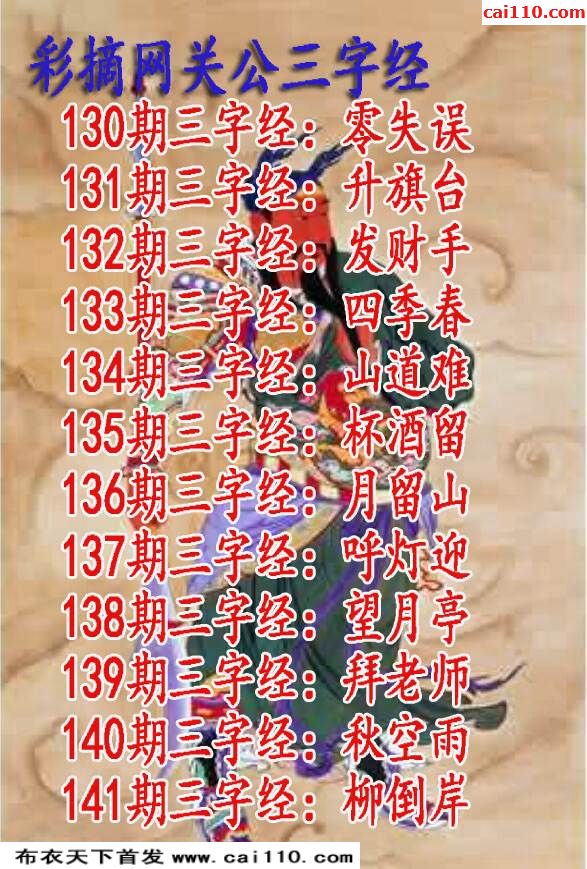 cai110.com
彩摘网关公三字经
130期三字经：零失误
131期三字经：升旗台
132期三字经：发财手
133期三字经：四季春
134期三字经：山道难
135期三字经：杯酒留
136期三字经：月留山
137期三字经：呼灯迎
138期三字经：望月亭
139期三字经：拜老师
140期三字经：秋空雨
141期三字经：柳倒岸
布衣天下首发 www.cai110.com